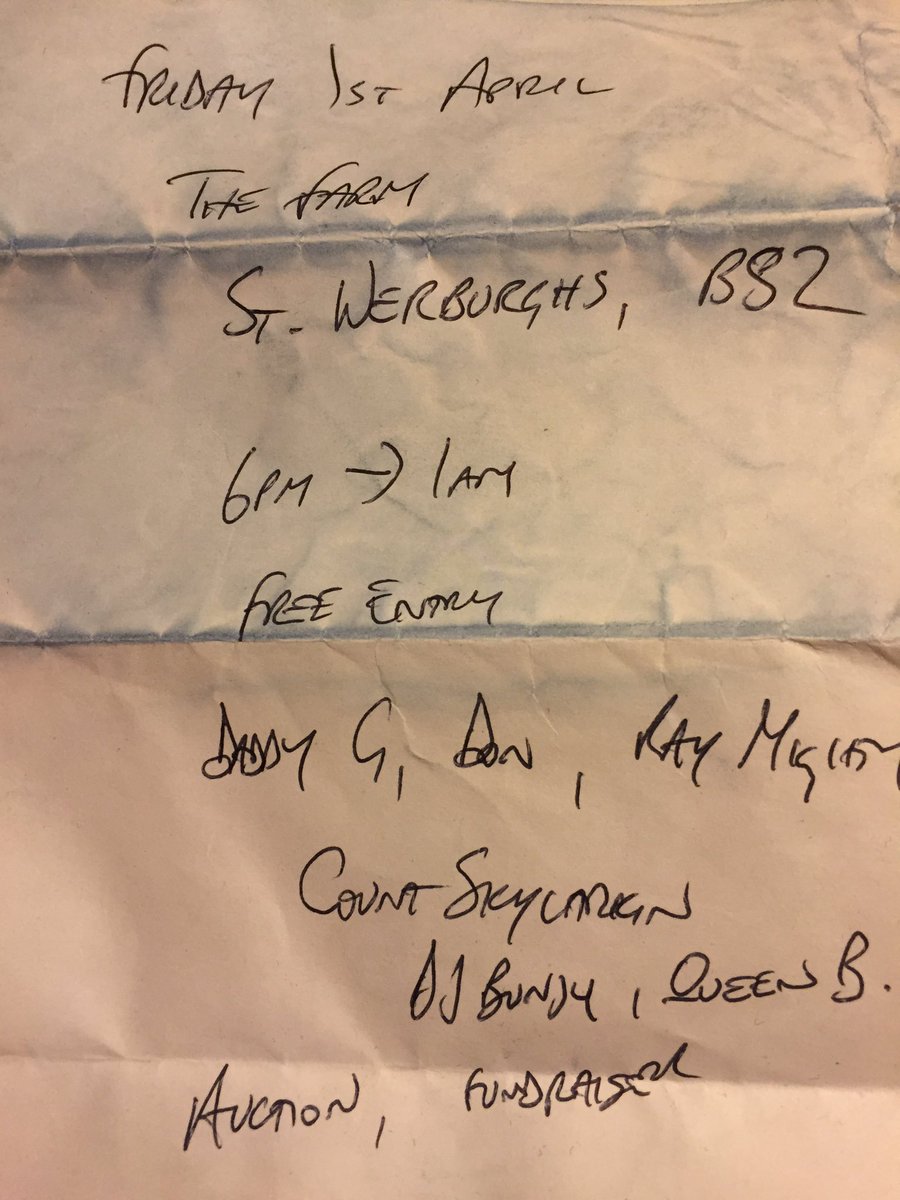 FRIDAY 1ST APRIL
THE FARM
ST. WERBURGHS, BS2
6PM → 1AM
FREE ENTRY
DADDY G, DON, RAY MIGHTY
COUNT SKYLARKIN
DJ BUNJY, QUEEN B.
AUCTION, FUNDRAISER